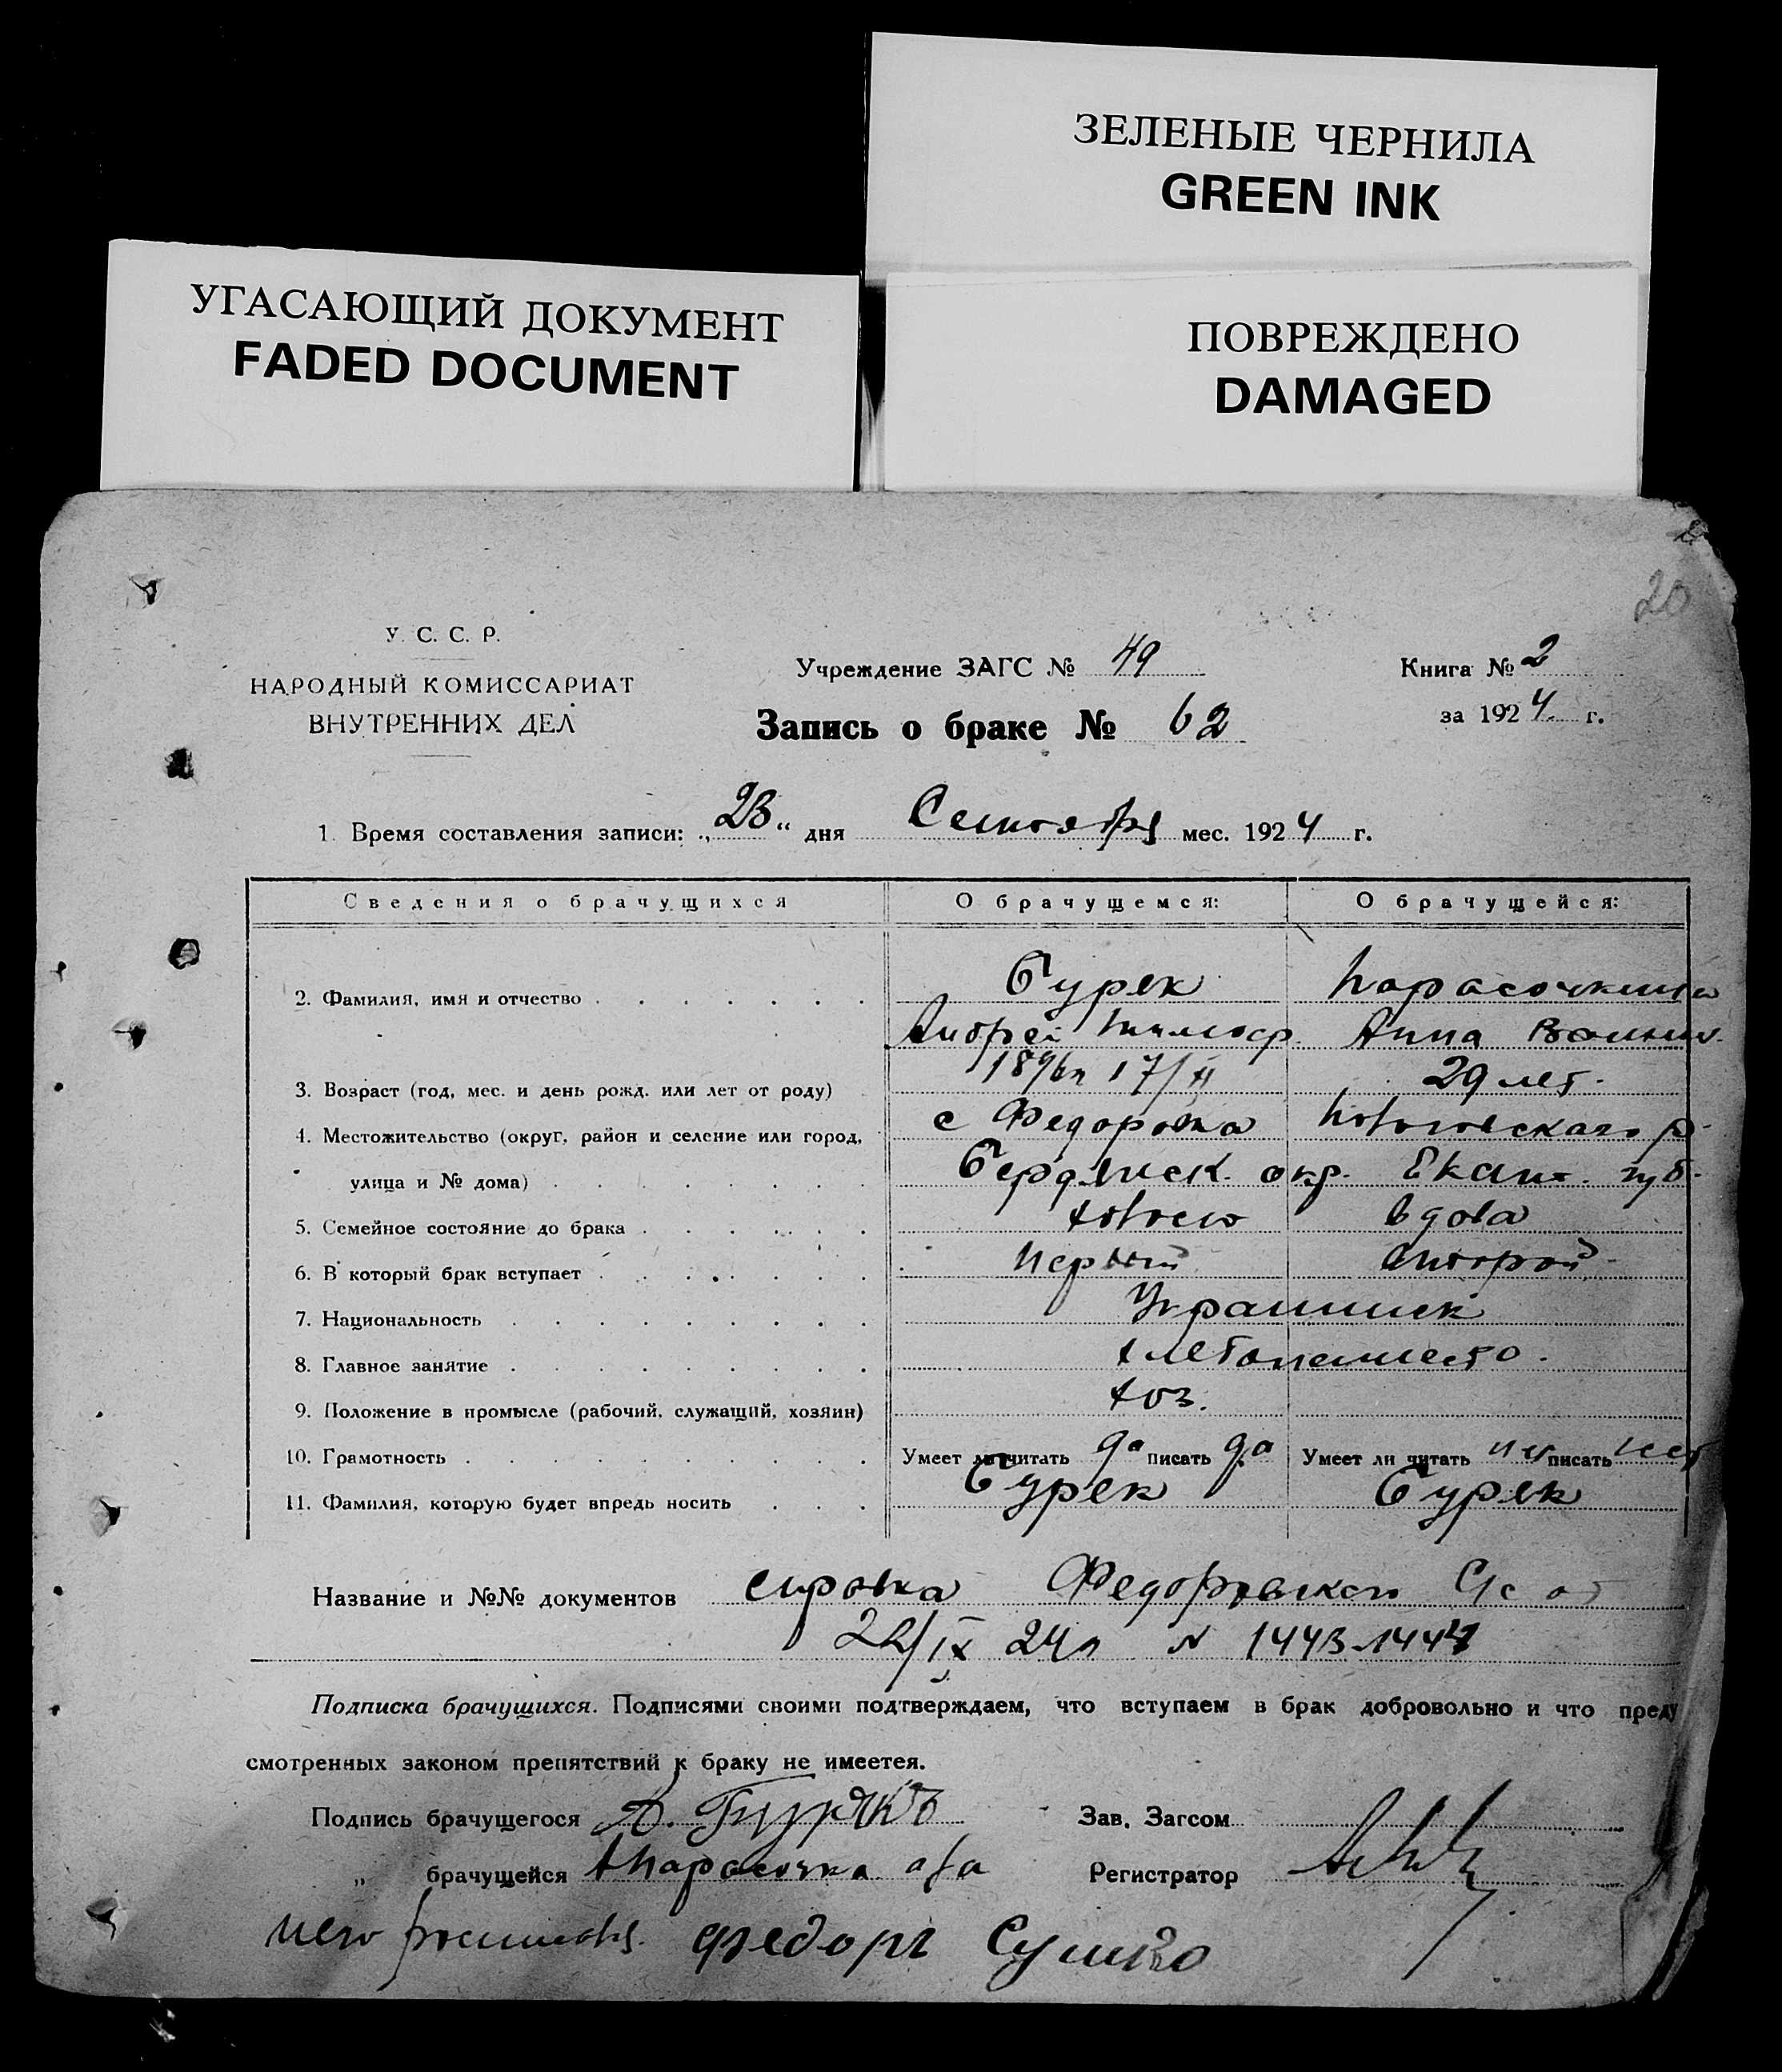 ЗЕЛЕНЫЕ ЧЕРНИЛА
GREEN INK
УГАСАЮЩИЙ ДОКУМЕНТ
FADED DOCUMENT
ПОВРЕЖДЕНО
DAMAGED
20
У. С. С. Р.
НАРОДНЫЙ КОМИССАРИАТ
ВНУТРЕННИХ ДЕЛ
Учреждение ЗАГС № 49
Запись о браке № 62
Книга № 2
за 1924 г.
1. Время составления записи: „23“ дня Сентября мес. 1924 г.
Сведения о брачущихся О брачущемся: О брачущейся:
2. Фамилия, имя и отчество Буряк
Андрей Анна
3. Возраст (год, мес. и день рожд. или лет от роду) 1896г 17/ 29 лет.
4. Местожительство (округ, район и селение или город, с Федоровка
улица и № дома) Бердянск. окр. Екат. губ.
5. Семейное состояние до брака холост вдова
6. В который брак вступает первый второй
7. Национальность Украинцы
8. Главное занятие хлебопашество.
9. Положение в промысле (рабочий, служащий, хозяин) хоз.
10. Грамотность Умеет ли читать да писать да Умеет ли читать писать нет
11. Фамилия, которую будет впредь носить Буряк Буряк
Название и №№ документов справка Федоровского с/с от
22/IX 24г № 1443-1444
Подписка брачущихся. Подписями своими подтверждаем, что вступаем в брак добровольно и что преду
смотренных законом препятствий к браку не имеетея.
Подпись брачущегося А. Бурякъ Зав. Загсом
„ брачущейся Регистратор
Федорг Сушко